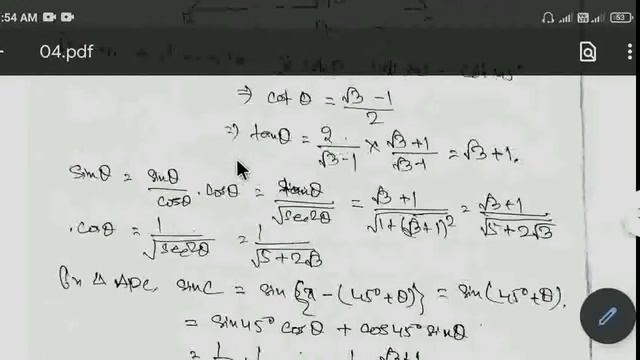 :54 AM
53
04.pdf
⇒ cot θ = (√3 − 1)/2
⇒ tanθ = 2/(√3−1) × (√3+1)/(√3-1) = √3+1.
sinθ = sinθ/cosθ . cosθ = tanθ/√(sec²θ) = (√3+1)/√(1+(√3+1)²) = (√3+1)/√(5+2√3)
. cosθ = 1/√(sec²θ) = 1/√(5+2√3)
In Δ ADC, sinC = sin {π − (45° + θ)} = sin(45°+θ).
= sin45° cosθ + cos45° sinθ